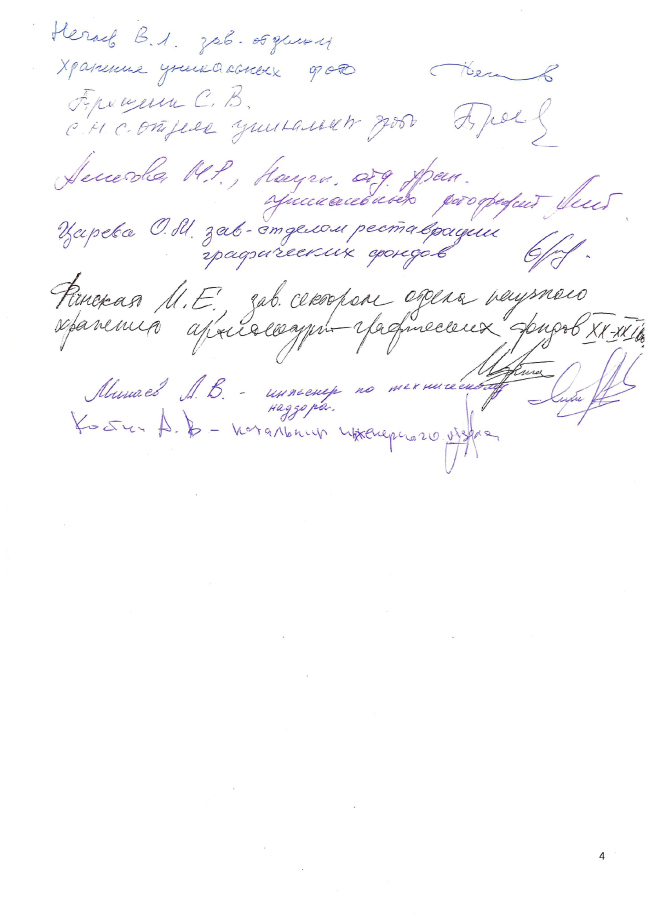 Нечаев В.Л. зав. отделом
хранения уникальных фото
С. В.
с.н.с. отдела уникальных фото
М.Р., Научн. отд. хран.
уникальных фотографий
Царева О.М. зав. отделом реставрации
графических фондов
Финская М.Е. зав. сектором отдела научного
хранения архитектурно-графических фондов XX-XXI вв
Минаев А.В. - инженер по техническому
надзора.
Костин А.В - начальник инженерного отдела
4